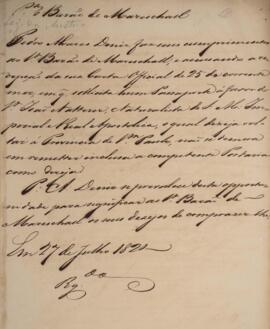 Barão de Mareschall
Pedro Alvares Diniz faz seus cumprimentos
ao Sr. Barão de Mareschall, e accusando a re-
cepção da sua Carta Official de 25 do corrente
mez, em q. sollicita hum Passaporte a favor de
João Natterer, Naturalista de S. M. Im-
perial e Real Apostolica, o qual deseja vol-
tar á Provincia de Sm. Paulo, não demora
em remetter inclusa a competente Portaria
como deseja.
P. A. Diniz se prevalece desta opportu-
nidade para significar ao Sr. Barão de
Mareschal os seus desejos de comprazer-lhe
Em 27 de Julho 182